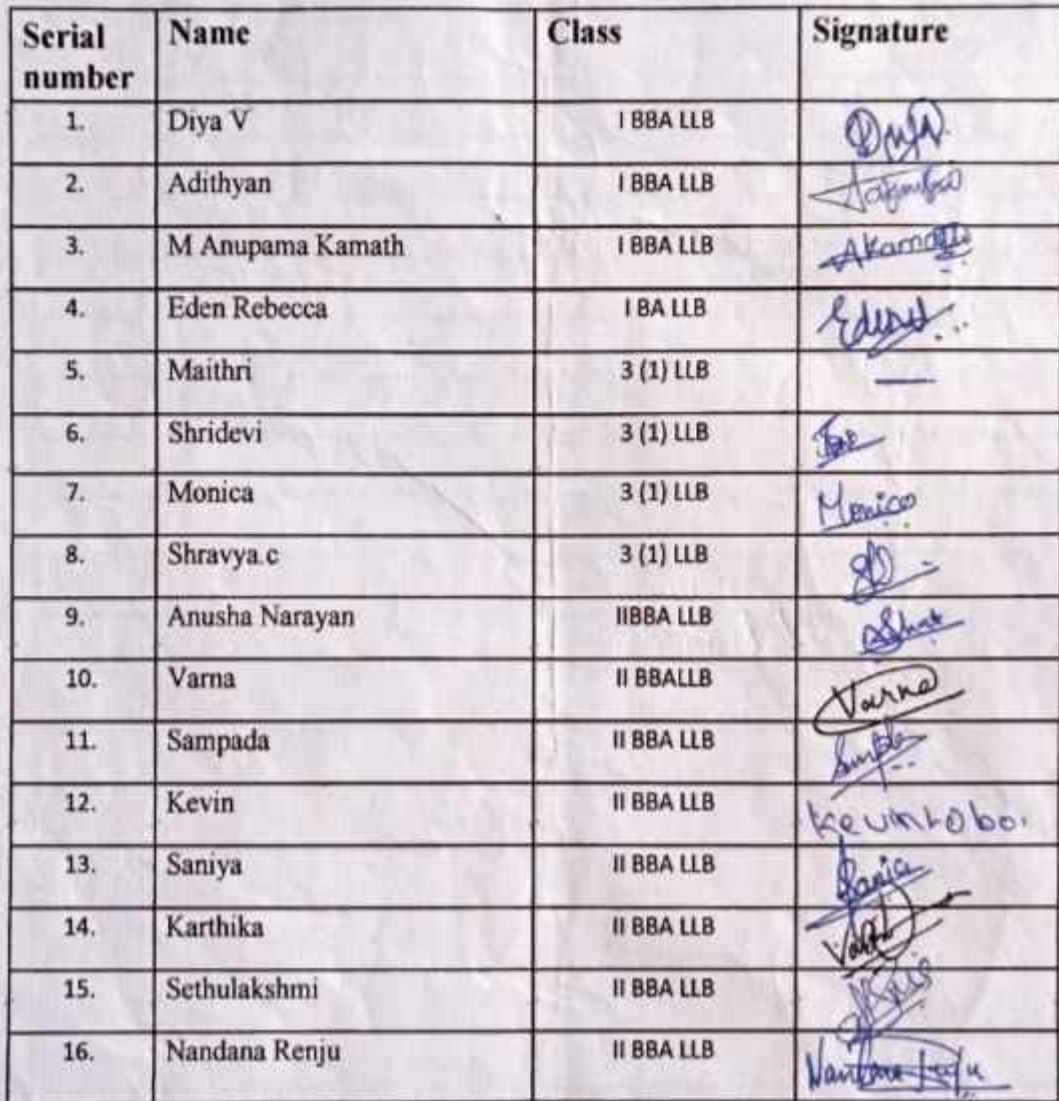 Serial number Name Class Signature
1. Diya V I BBA LLB
2. Adithyan I BBA LLB
3. M Anupama Kamath I BBA LLB AKamath
4. Eden Rebecca I BA LLB
5. Maithri 3 (1) LLB —
6. Shridevi 3 (1) LLB
7. Monica 3 (1) LLB Monica
8. Shravya.c 3 (1) LLB
9. Anusha Narayan IIBBA LLB
10. Varna II BBALLB Varna
11. Sampada II BBA LLB
12. Kevin II BBA LLB Kevin Lobo.
13. Saniya II BBA LLB
14. Karthika II BBA LLB
15. Sethulakshmi II BBA LLB
16. Nandana Renju II BBA LLB Nandana Renju